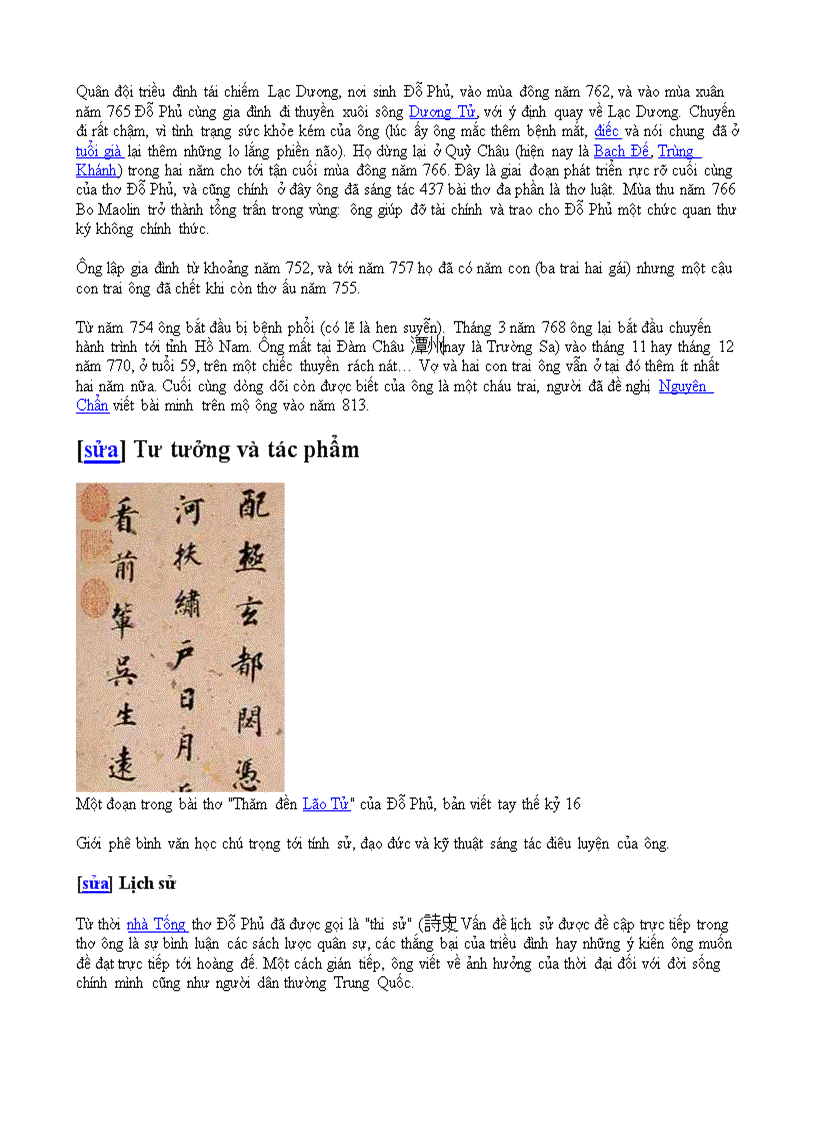 Quân đội triều đình tái chiếm Lạc Dương, nơi sinh Đỗ Phủ, vào mùa đông năm 762, và vào mùa xuân
năm 765 Đỗ Phủ cùng gia đình đi thuyền xuôi sông Dương Tử, với ý định quay về Lạc Dương. Chuyến
đi rất chậm, vì tình trạng sức khỏe kém của ông (lúc ấy ông mắc thêm bệnh mắt, điếc và nói chung đã ở
tuổi già lại thêm những lo lắng phiền não). Họ dừng lại ở Quỳ Châu (hiện nay là Bạch Đế, Trùng
Khánh) trong hai năm cho tới tận cuối mùa đông năm 766. Đây là giai đoạn phát triển rực rỡ cuối cùng
của thơ Đỗ Phủ, và cũng chính ở đây ông đã sáng tác 437 bài thơ đa phần là thơ luật. Mùa thu năm 766
Bo Maolin trở thành tổng trấn trong vùng: ông giúp đỡ tài chính và trao cho Đỗ Phủ một chức quan thư
ký không chính thức.
Ông lập gia đình từ khoảng năm 752, và tới năm 757 họ đã có năm con (ba trai hai gái) nhưng một cậu
con trai ông đã chết khi còn thơ ấu năm 755.
Từ năm 754 ông bắt đầu bị bệnh phổi (có lẽ là hen suyễn). Tháng 3 năm 768 ông lại bắt đầu chuyến
hành trình tới tỉnh Hồ Nam. Ông mất tại Đàm Châu 潭州(nay là Trường Sa) vào tháng 11 hay tháng 12
năm 770, ở tuổi 59, trên một chiếc thuyền rách nát... Vợ và hai con trai ông vẫn ở tại đó thêm ít nhất
hai năm nữa. Cuối cùng dòng dõi còn được biết của ông là một cháu trai, người đã đề nghị Nguyên
Chẩn viết bài minh trên mộ ông vào năm 813.
[sửa] Tư tưởng và tác phẩm
配極玄都閟憑
河扶繡戶日月近
看前輩吳生遠
Một đoạn trong bài thơ "Thăm đền Lão Tử" của Đỗ Phủ, bản viết tay thế kỷ 16
Giới phê bình văn học chú trọng tới tính sử, đạo đức và kỹ thuật sáng tác điêu luyện của ông.
[sửa] Lịch sử
Từ thời nhà Tống thơ Đỗ Phủ đã được gọi là "thi sử" (詩史 Vấn đề lịch sử được đề cập trực tiếp trong
thơ ông là sự bình luận các sách lược quân sự, các thắng bại của triều đình hay những ý kiến ông muốn
đề đạt trực tiếp tới hoàng đế. Một cách gián tiếp, ông viết về ảnh hưởng của thời đại đối với đời sống
chính mình cũng như người dân thường Trung Quốc.